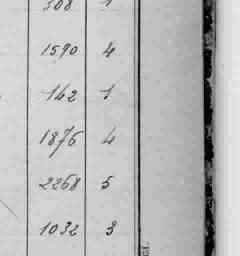 308 1
1590 4
142 1
1876 4
2268 5
1032 3